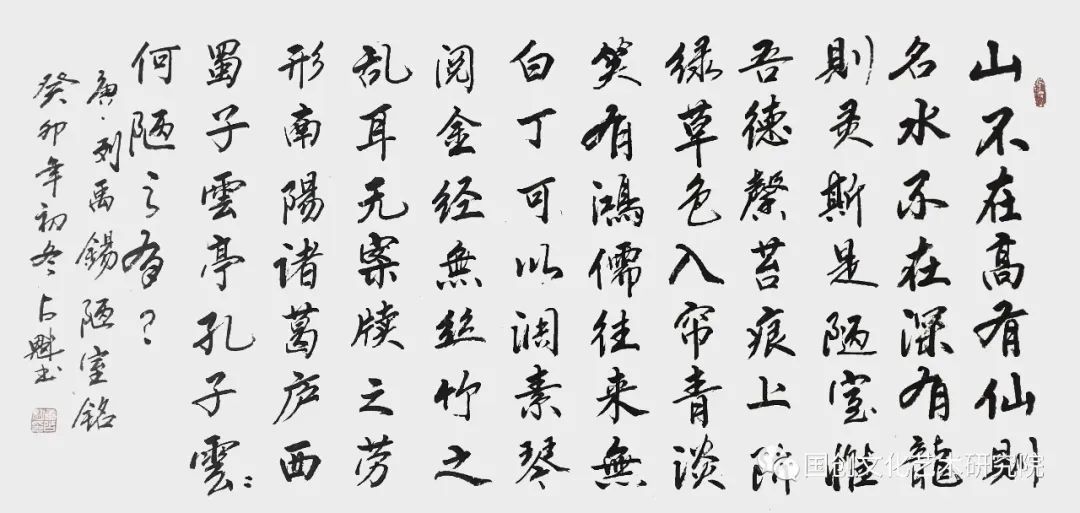 山不在高有仙則
名水不在深有龍
則灵斯是陋室惟
吾德馨苔痕上阶
绿草色入帘青淡
笑有鴻儒往来無
白丁可以调素琴
阅金经無丝竹之
乱耳无案牍之劳
形南陽诸葛庐西
蜀子雲亭孔子雲：
何陋之有？
唐·刘禹錫陋室銘
癸卯年初冬占魁书
国创文化艺术研究院